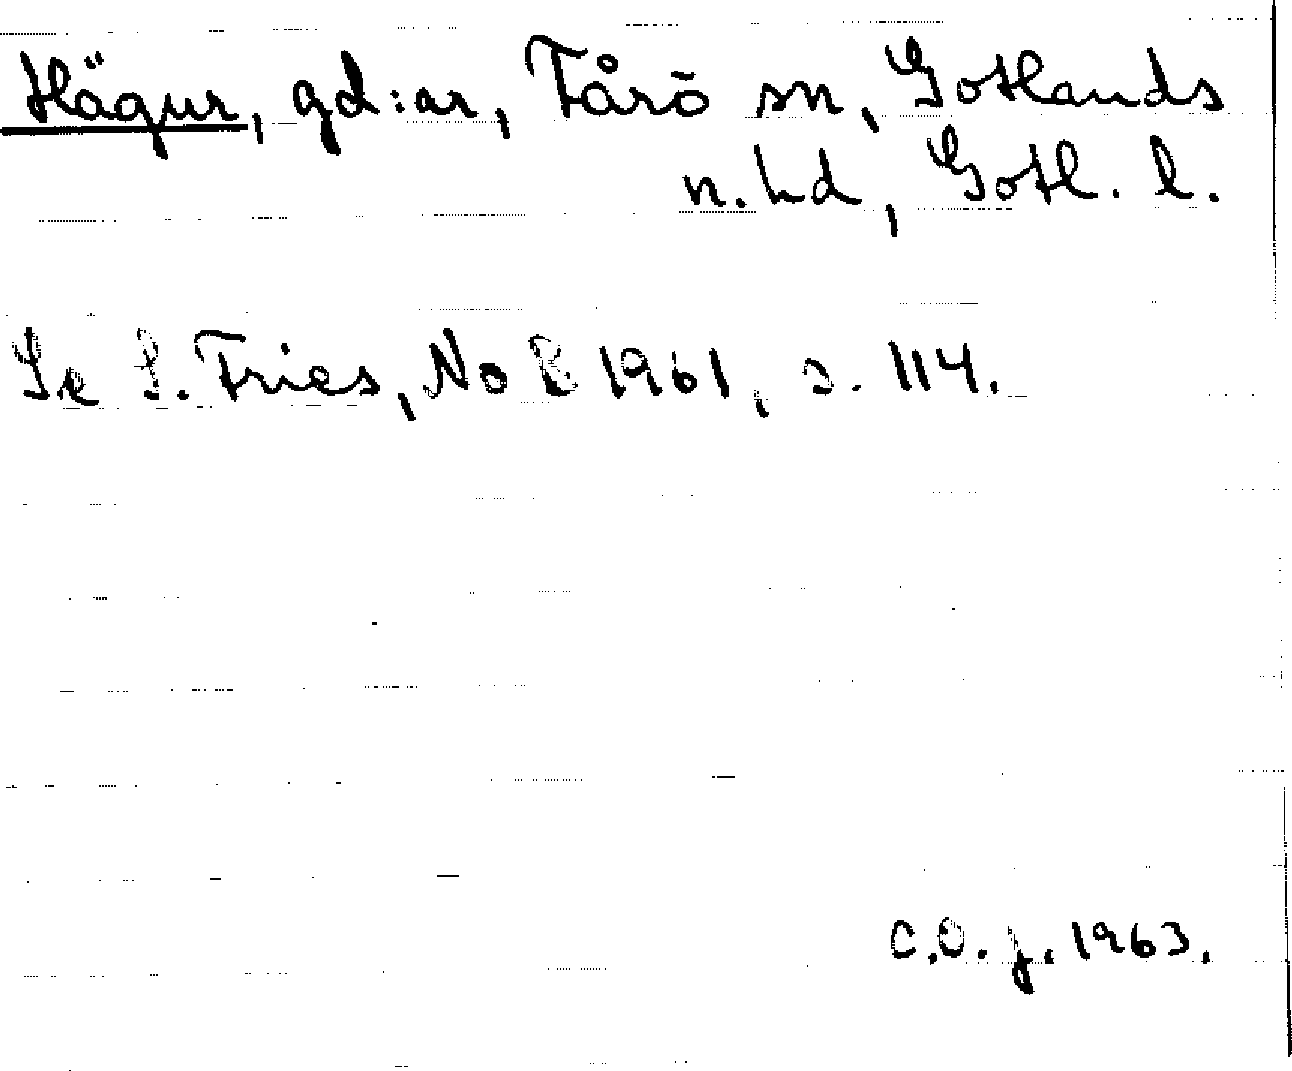 Hägur, gd:ar, Fårö sn, Gotlands
n.hd, Gotl. l.
Se S. Fries, NoB 1961, s. 114.
C.O.J. 1963.